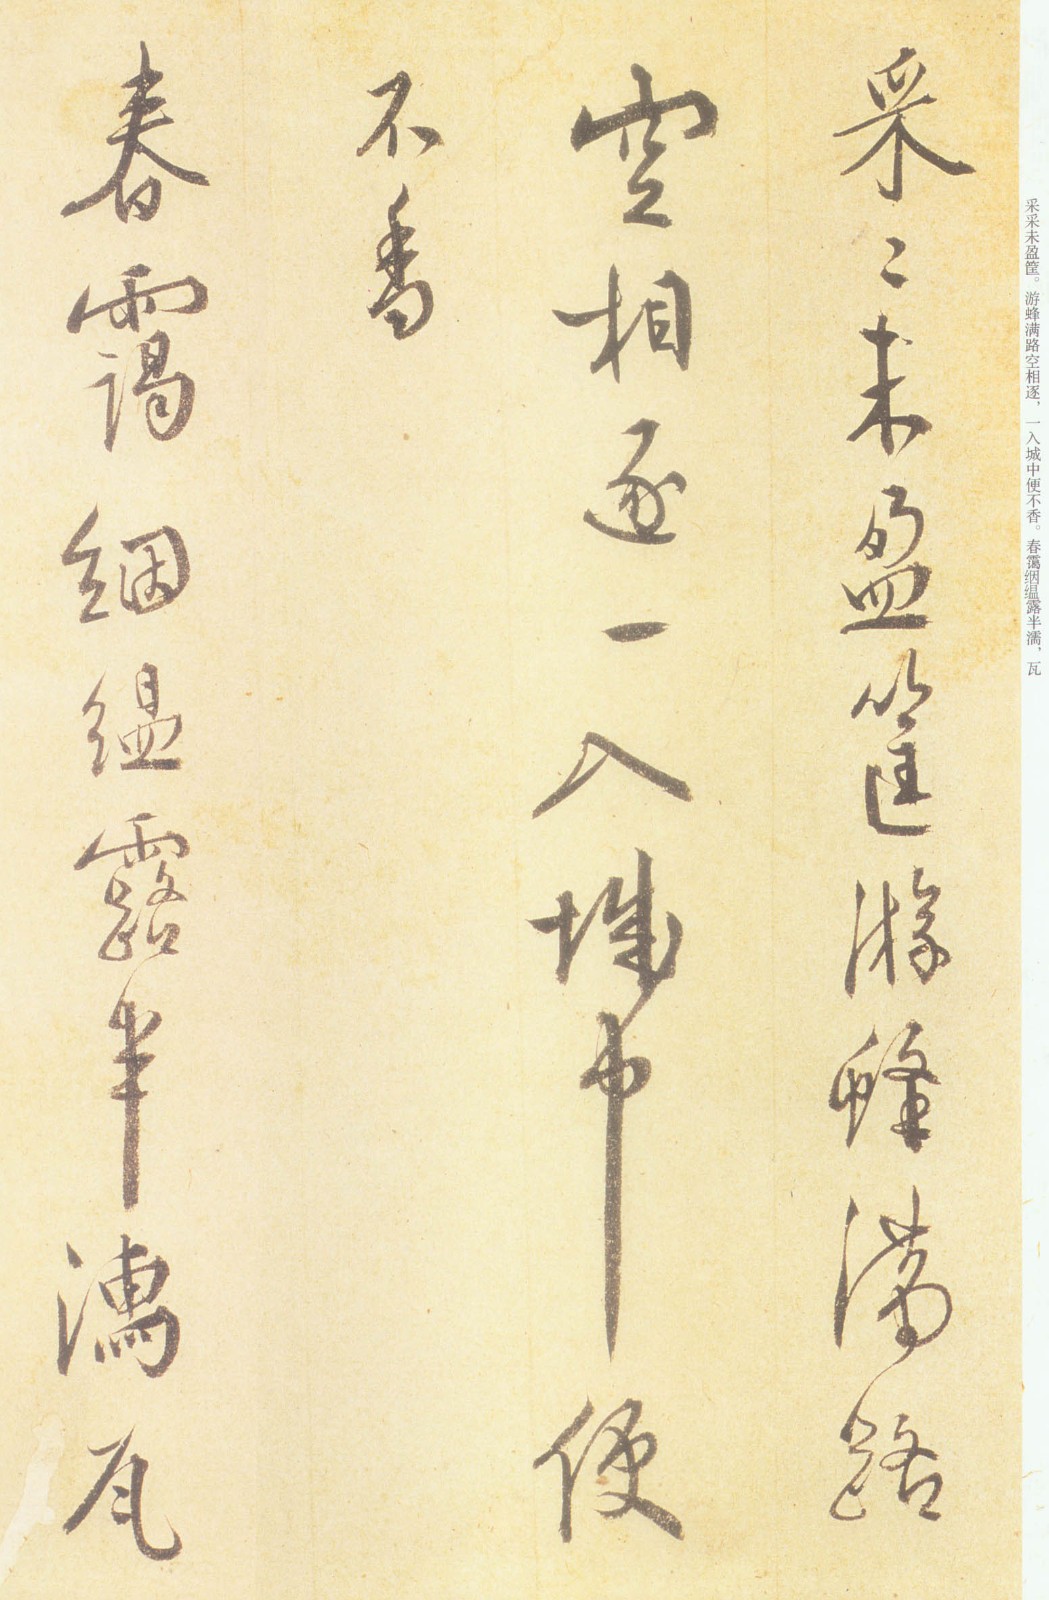 采〻未盈筐游蜂满路
空相逐一入城中便
不香
春靄絪緼露半濡瓦
采采未盈筐。游蜂满路空相逐，一入城中便不香。春霭絪缊露半濡，瓦